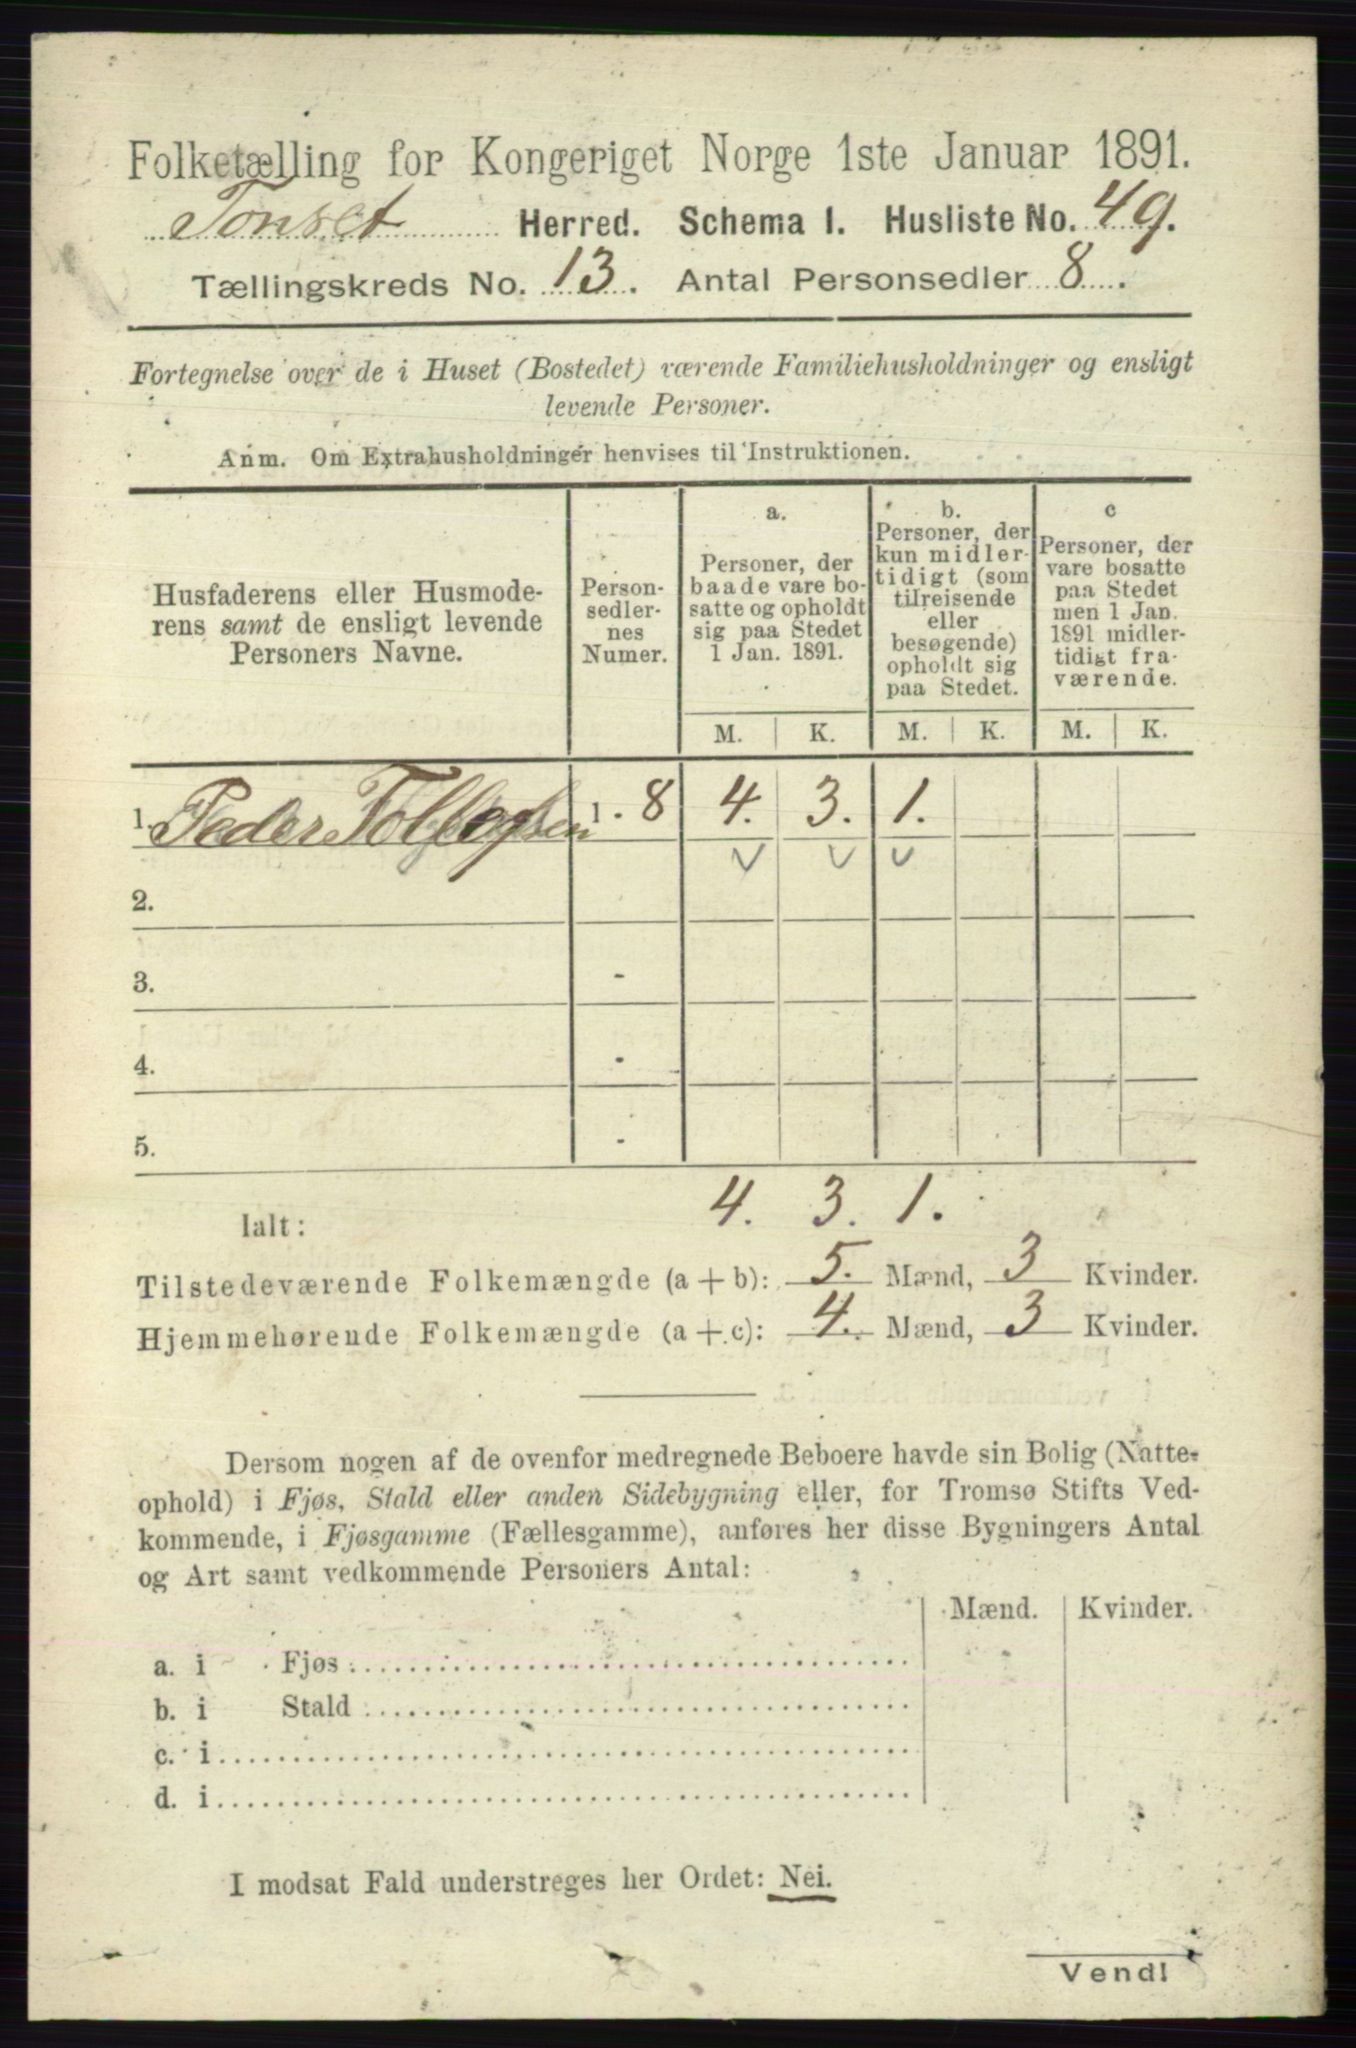 Folketælling for Kongeriget Norge 1ste Januar 1891.
Tonset Herred. Schema I. Husliste No. 49.
Tællingskreds No. 13. Antal Personsedler 8.
Fortegnelse over de i Huset (Bostedet) værende Familiehusholdninger og ensligt
levende Personer.
Anm. Om Extrahusholdninger henvises til Instruktionen.
Husfaderens eller Husmode-
rens samt de ensligt levende
Personers Navne.
Person-
sedler-
nes
Numer.
a.
Personer, der
baade vare bo-
satte og opholdt
sig paa Stedet
1 Jan. 1891.
b.
Personer, der
kun midler-
tidigt (som
tilreisende
eller
besøgende)
opholdt sig
paa Stedet.
c
Personer, der
vare bosatte
paa Stedet
men 1 Jan.
1891 midler-
tidigt fra-
værende.
M. K. M. K. M. K.
1. Peder 1. 8 4. 3. 1.
2.
3. -
4. -
5. -
Ialt: 4. 3. 1.
Tilstedeværende Folkemængde (a + b): 5. Mænd, 3 Kvinder.
Hjemmehørende Folkemængde (a + c): 4. Mænd, 3 Kvinder.
Dersom nogen af de ovenfor medregnede Beboere havde sin Bolig (Natte-
ophold) i Fjøs, Stald eller anden Sidebygning eller, for Tromsø Stifts Ved-
kommende, i Fjøsgamme (Fællesgamme), anføres her disse Bygningers Antal
og Art samt vedkommende Personers Antal:
Mænd. Kvinder.
a. i Fjøs
b. i Stald
c. i
d. i
I modsat Fald understreges her Ordet: Nei.
Vend!